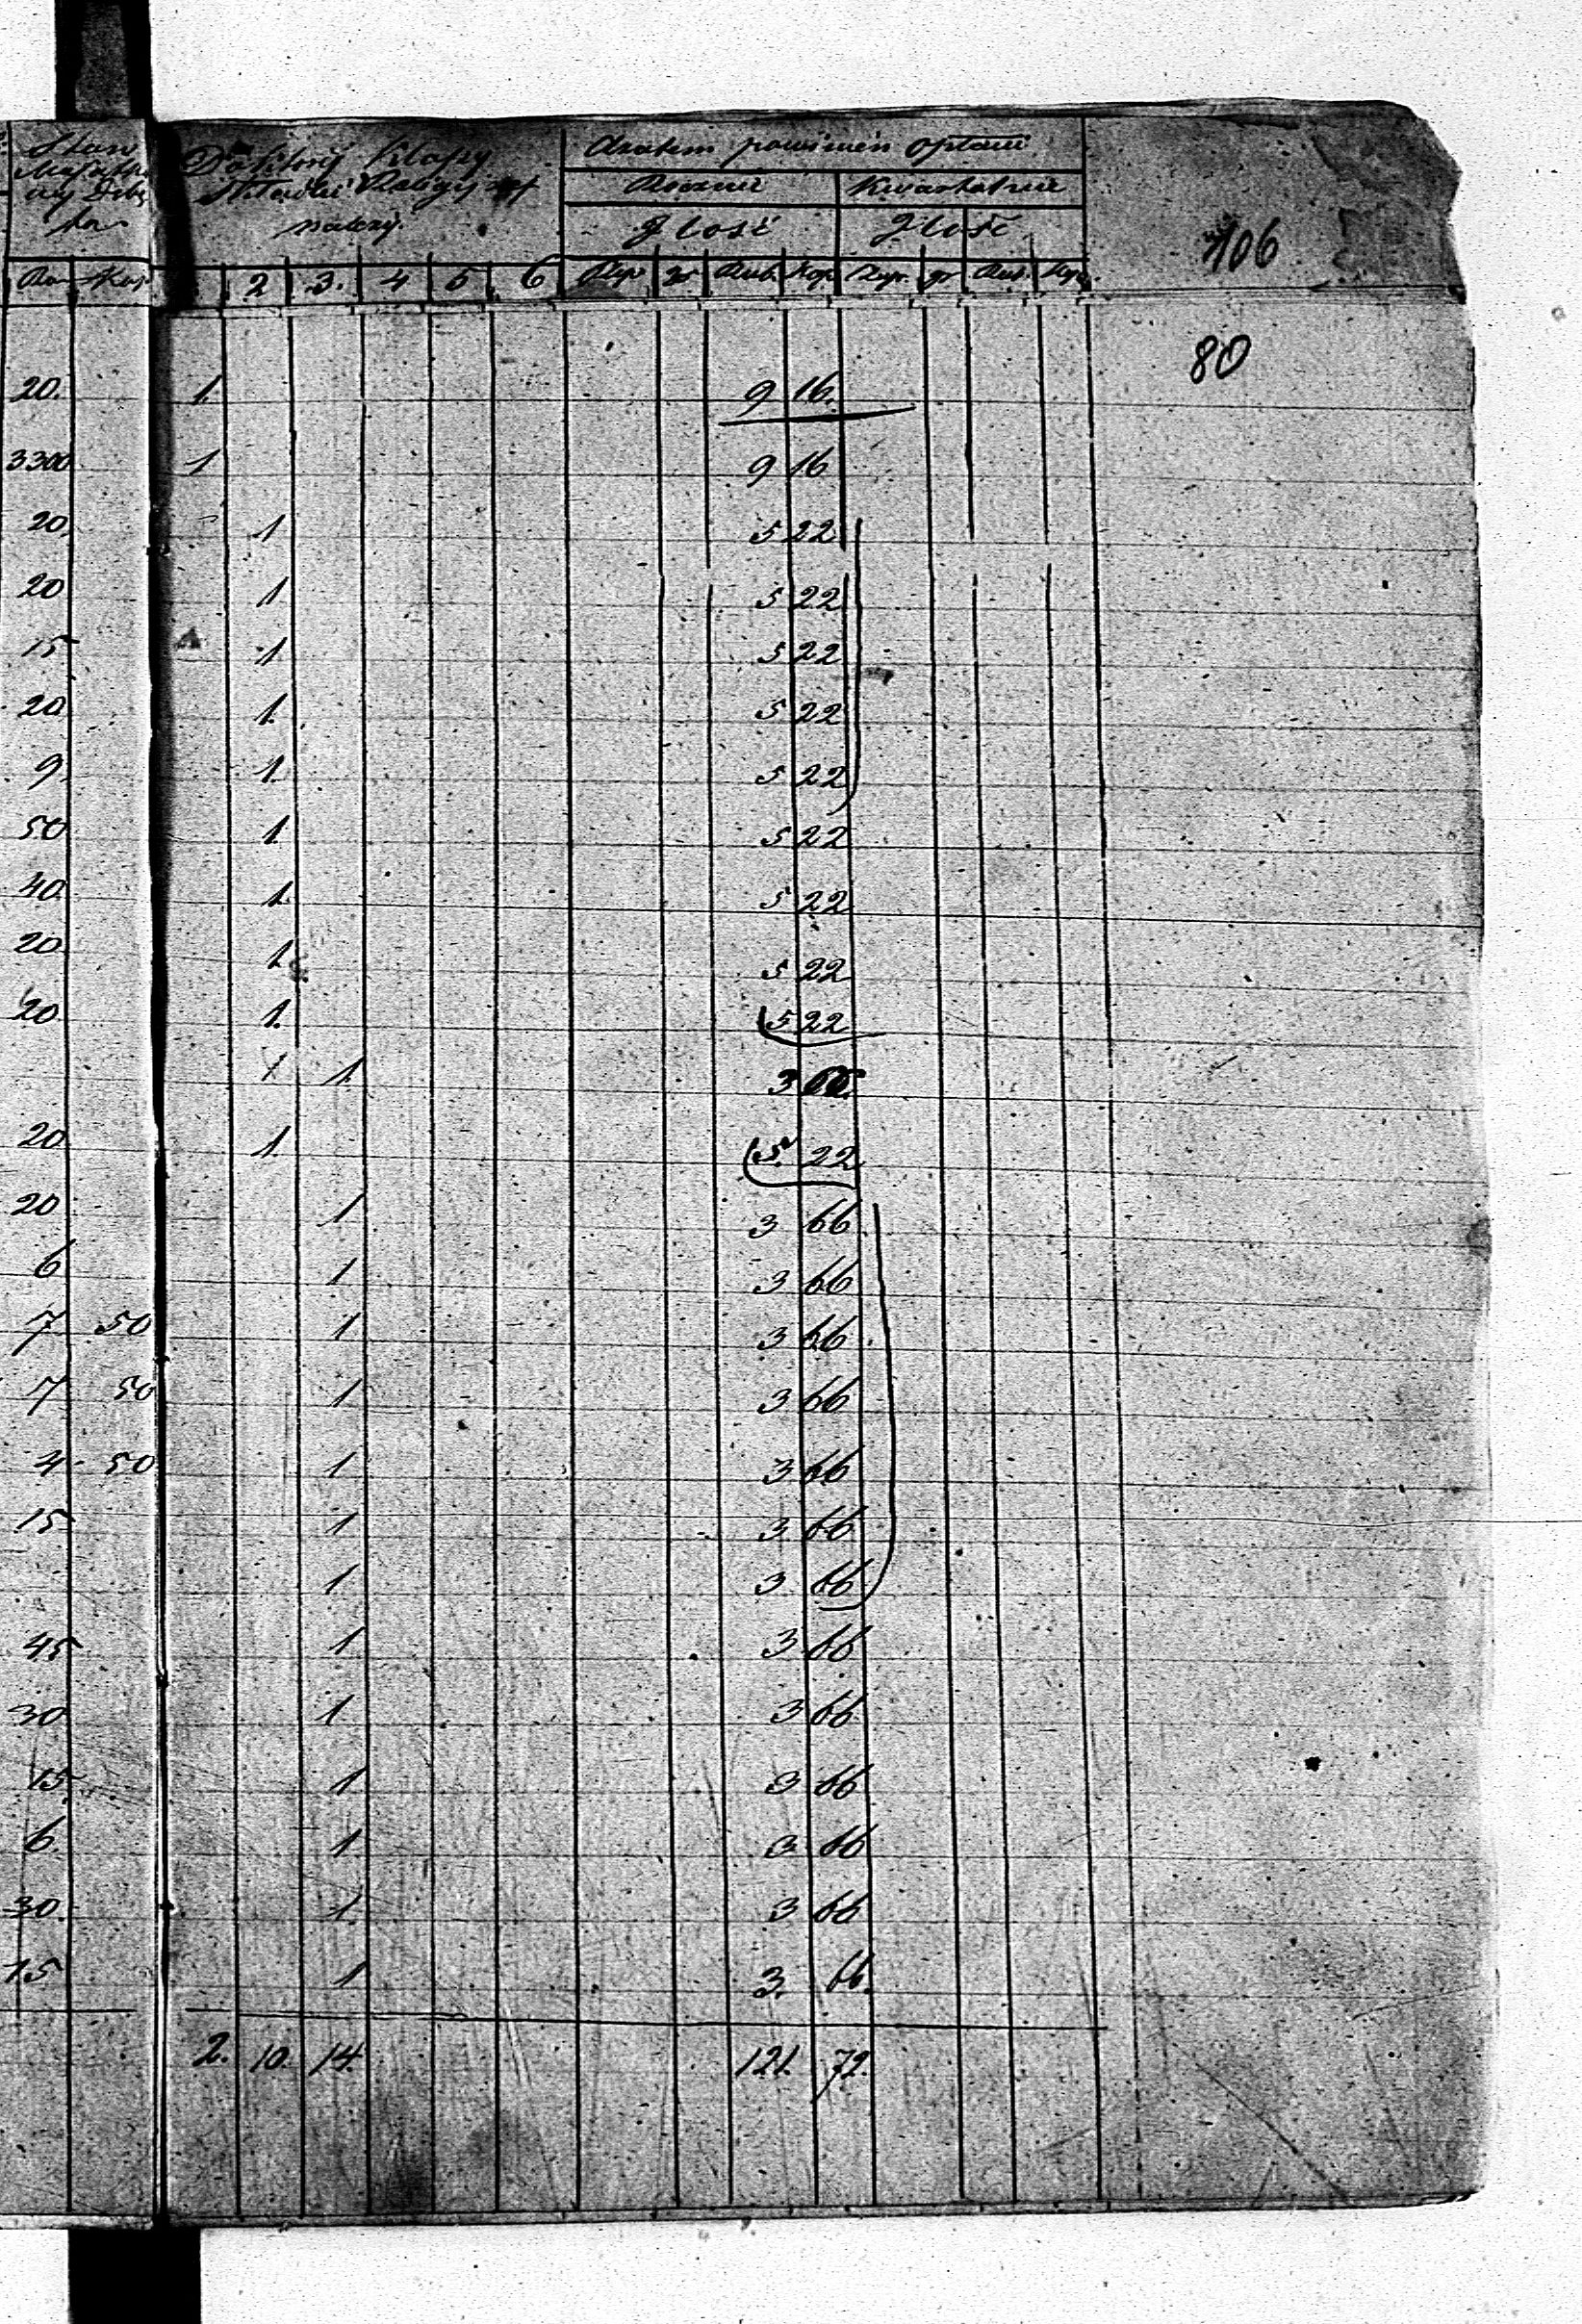 Stan
Do której Klassy
Składki Religijnej
należy
Razem powinien opłacić
Rocznie Kwartalnie
Ilość Ilość
106
2 3. 4 5 6 Rub. Kop. gr
80
20. 1. 9 16.
3300 1 9 16
20. 1 5 22
20 1 5 22
15 1 5 22
20 1. 5 22
9 1 5 22
50 1. 5 22
40. 1. 5 22
20. 1. 5 22
20. 1. 5 22
1 1. 3 66.
20 1. 5. 22
20 1 3 66
6 1 3 66
7 50 1 3 66
7 50 1 3 66
4 50 1 3 66
15 1 3 66
1 3 66
45 1 3 66
30 1 3 66
15. 1 3 66
6. 1 3 66
30. 1. 3 66
15 1 3. 66.
2. 10. 14. 121. 72.